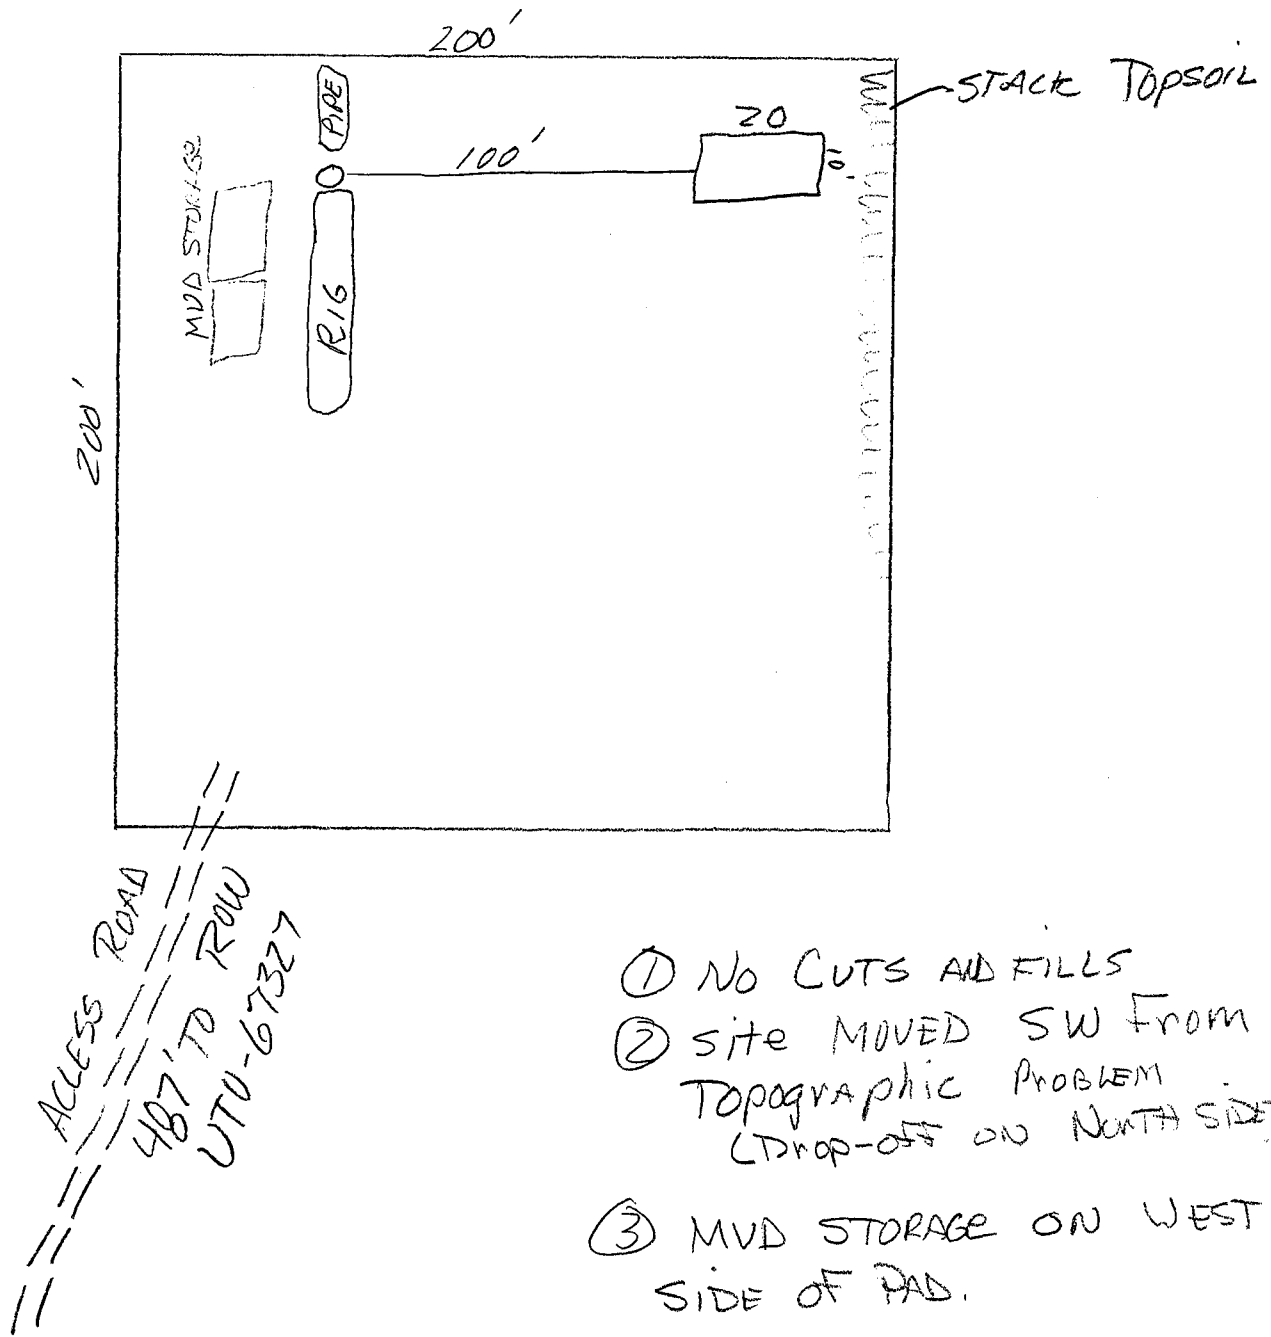 200'
STACK TOPSOIL
PIPE
100'
20
10'
MUD STORAGE
RIG
200'
ACCESS ROAD
487' TO ROW
UTU-67327
① No CUTS AND FILLS
② Site MOVED SW From
Topographic PROBLEM
(Drop-off ON NORTH SIDE
③ MUD STORAGE ON WEST
SIDE OF PAD.